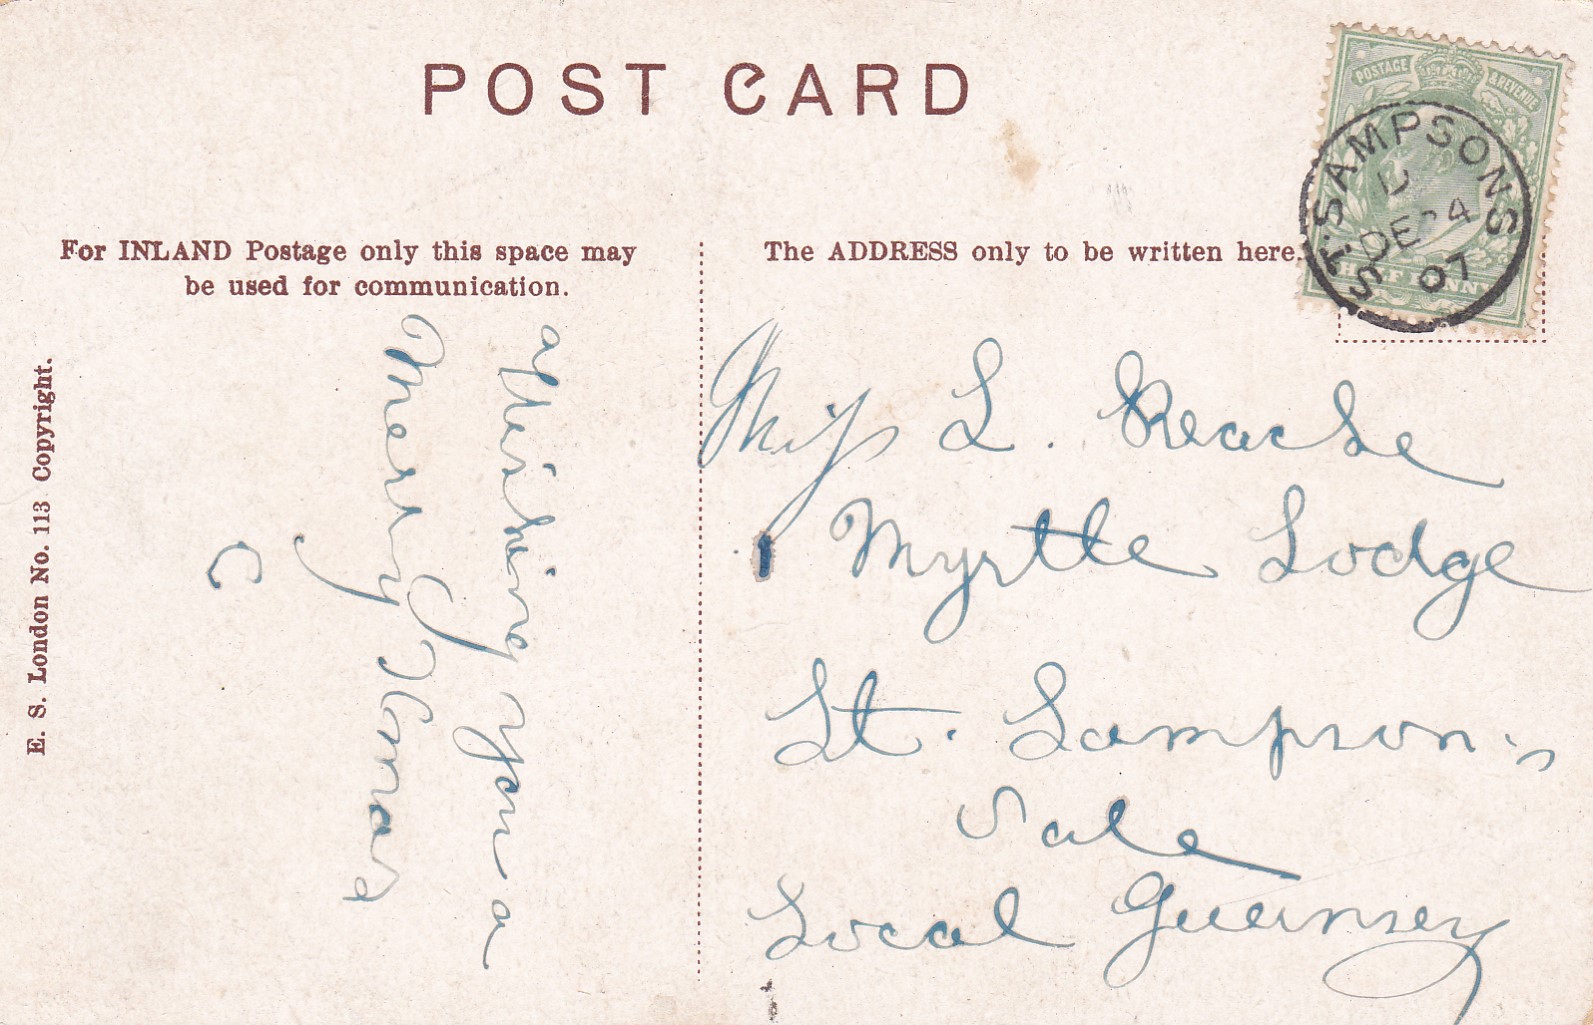 POST CARD
For INLAND Postage only this space may
be used for communication.
The ADDRESS only to be written here.
POSTAGE & REVENUE
HALF PENNY
ST. SAMPSONS
DE 24
07
E. S. London No. 113 Copyright.
Wishing you a
Merry Xmas
C
Miss L.
Myrtle Lodge
St. Sampson's
Vale
Local Guernsey